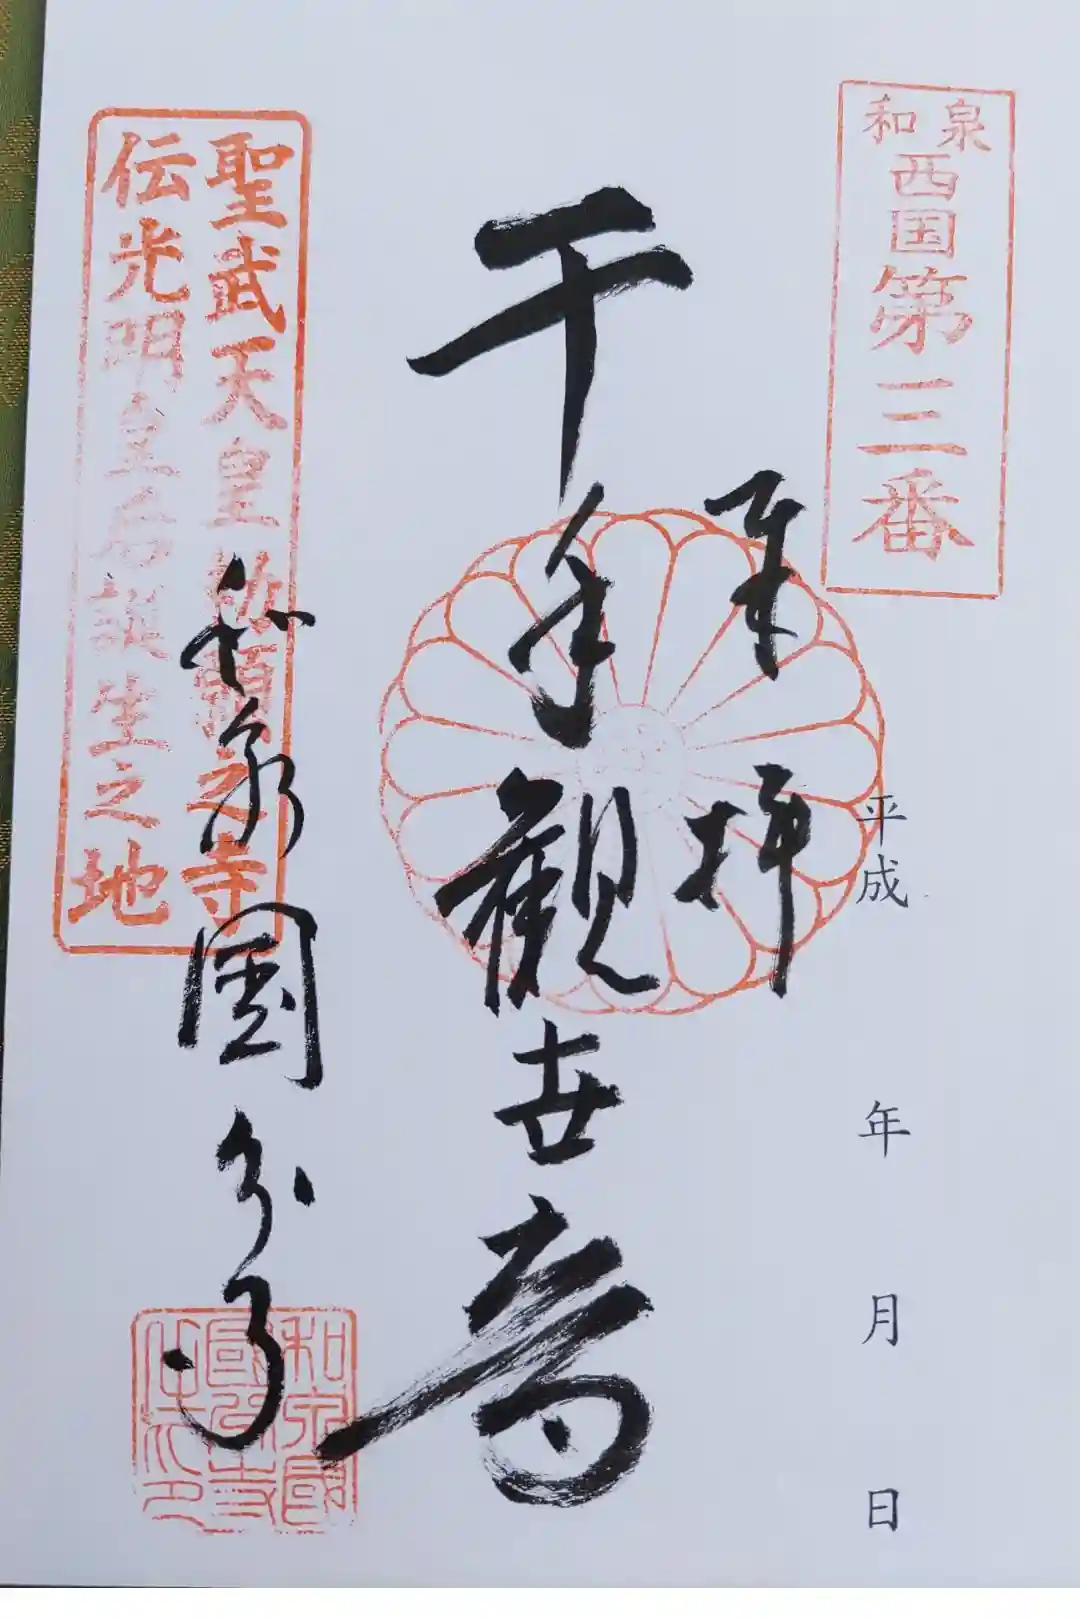 和泉
西国第三番
平成 年 月 日
奉拝
千手観世音
聖武天皇勅願之寺
伝光明皇后誕生之地
和泉国分寺